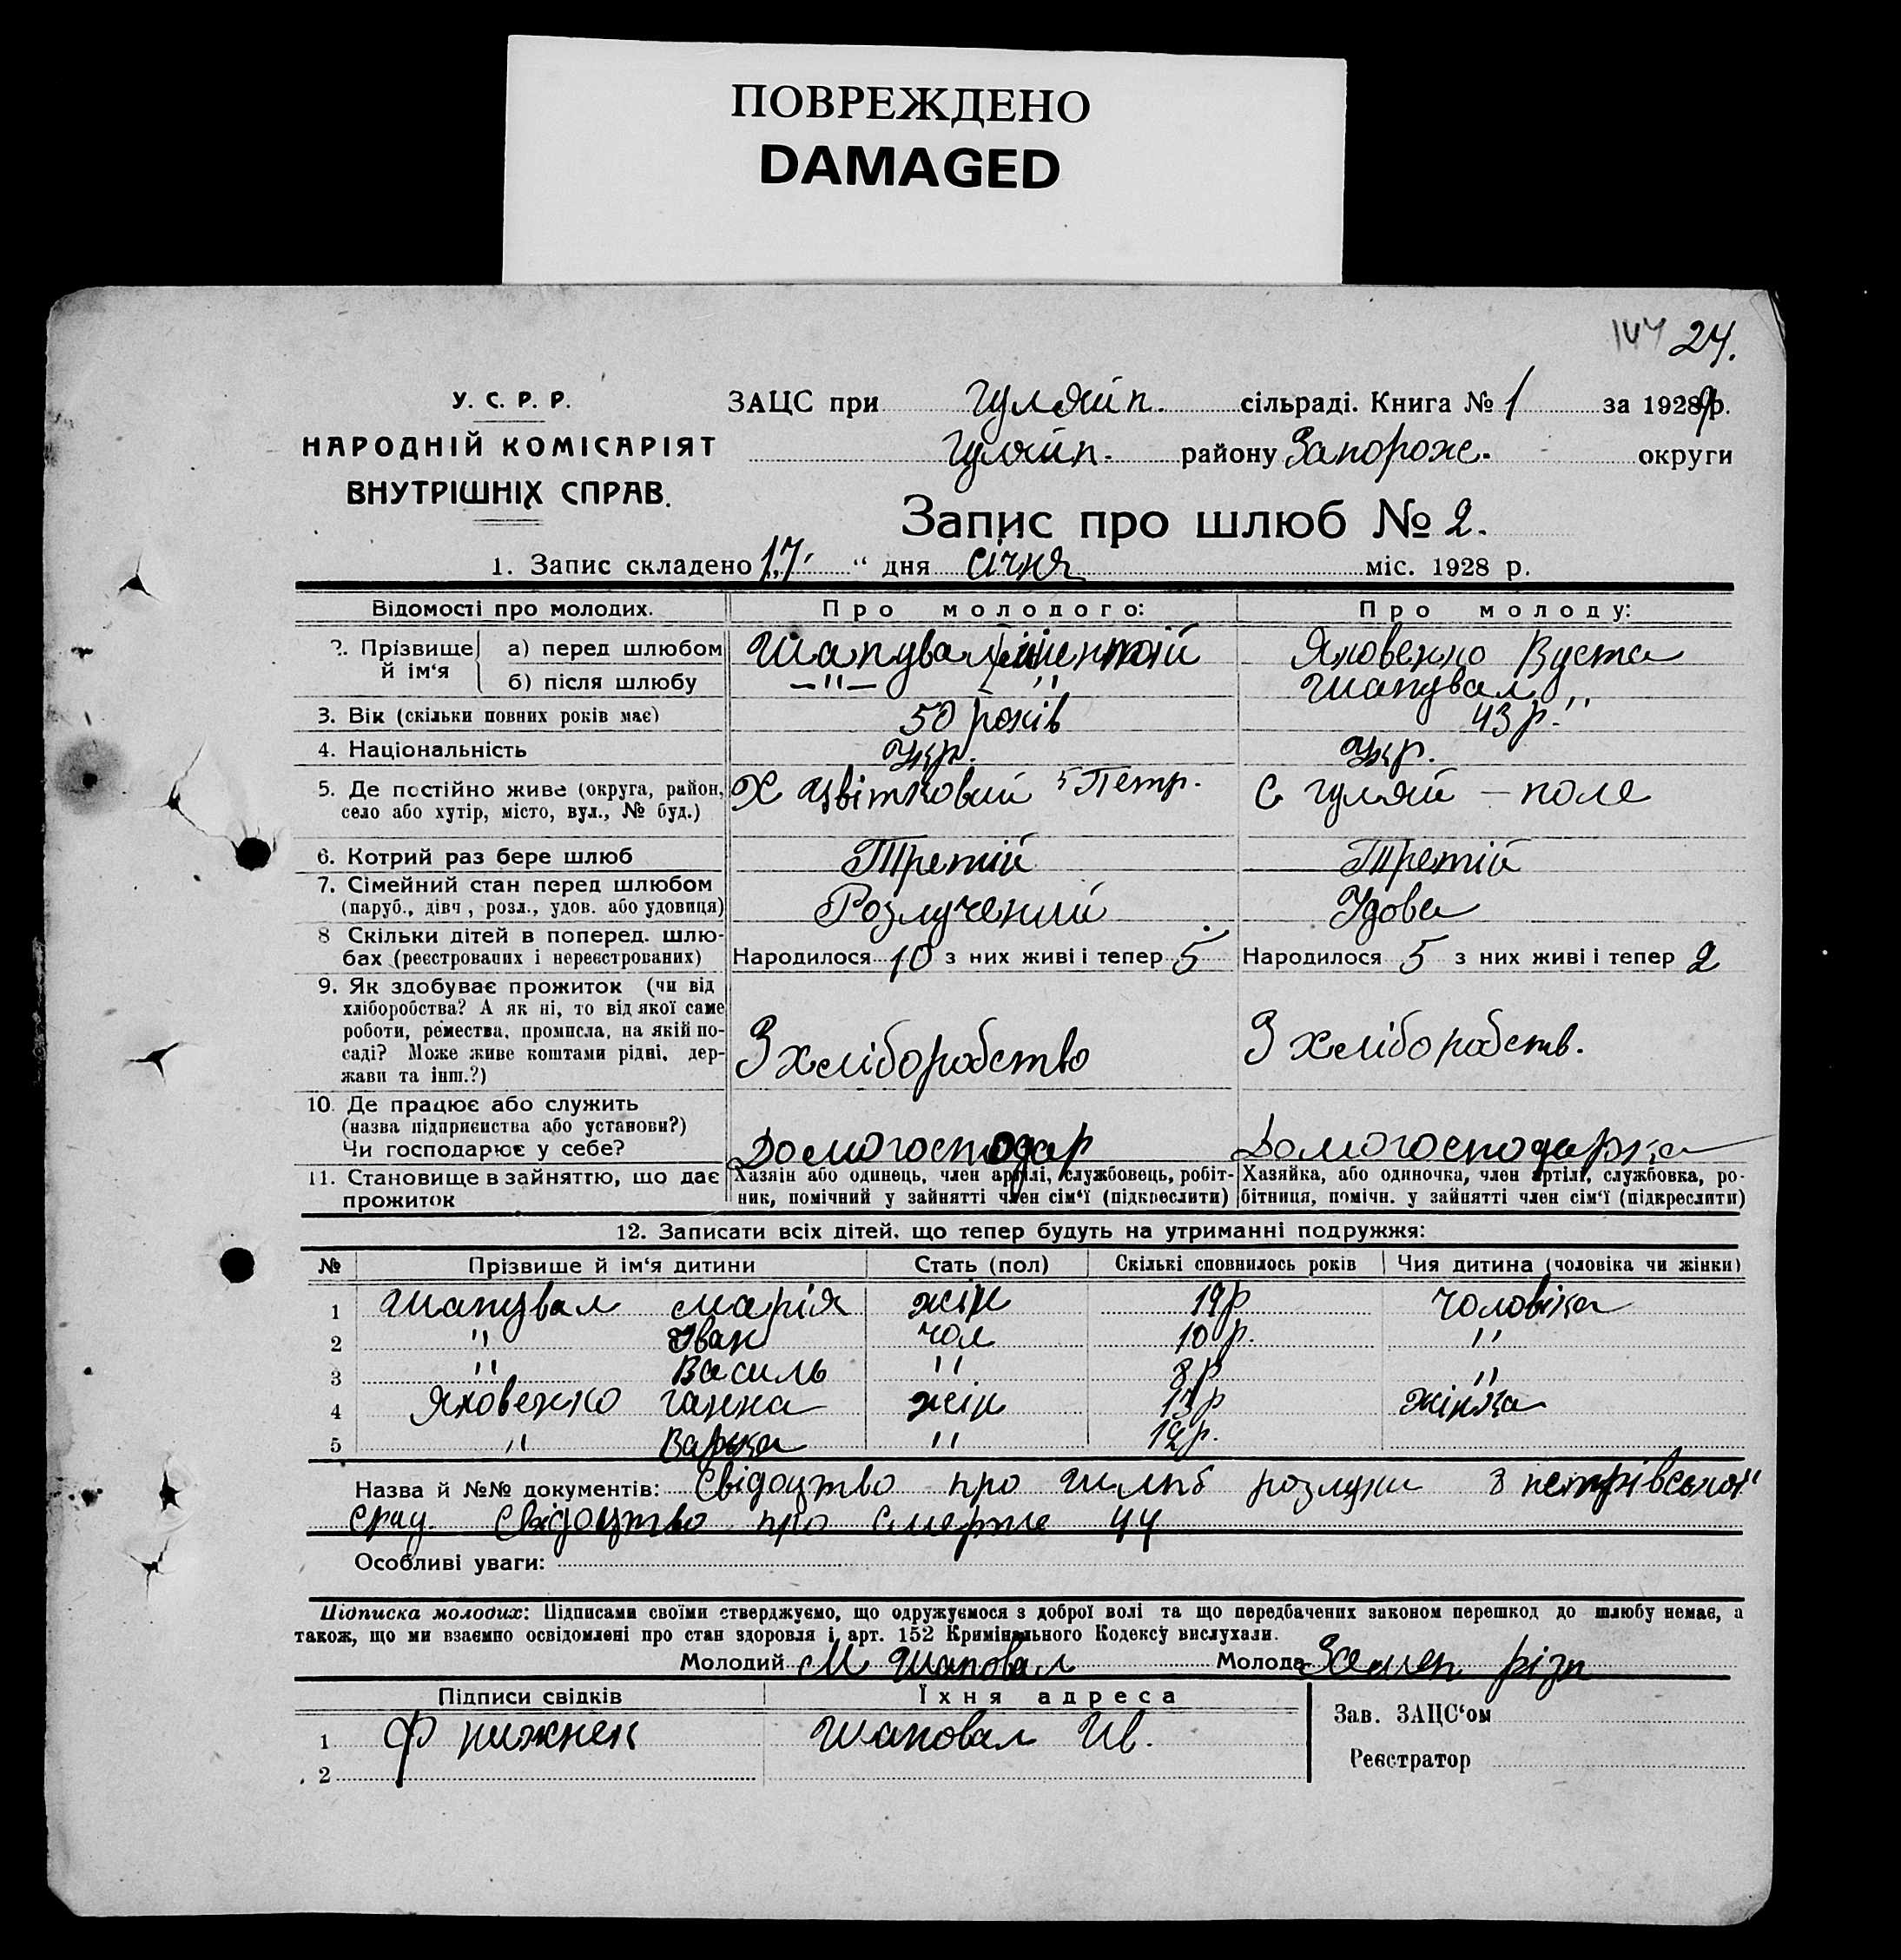 ПОВРЕЖДЕНО
DAMAGED
144 24.
У. С. Р. Р.
НАРОДНІЙ КОМІСАРІЯТ
ВНУТРІШНІХ СПРАВ.
ЗАЦС при Гуляйп. сільраді. Книга № 1 за 1929 р.
Гуляйп. району Запорож. округи
Запис про шлюб № 2.
1. Запис складено „17“ дня січня міс. 1928 р.
Відомості про молодих. Про молодого: Про молоду:
2. Прізвище й ім‘я а) перед шлюбом Шапувал Яковенко Вуста
б) після шлюбу —"— " Шапувал "
3. Вік (скільки повних років має) 50 років 43 р.
4. Національність Укр. Укр.
5. Де постійно живе (округа, район, село або хутір, місто, вул., № буд.) Х Цвітковий Петр. С Гуляй — поле
6. Котрий раз бере шлюб Третій Третій
7. Сімейний стан перед шлюбом (паруб., дівч., розл., удов. або удовиця) Розлучений Удова
8 Скільки дітей в поперед. шлюбах (реєстрованих і нереєстрованих) Народилося 10 з них живі і тепер 5 Народилося 5 з них живі і тепер 2
9. Як здобуває прожиток (чи від хліборобства? А як ні, то від якої саме роботи, ремества, промисла, на якій посаді? Може живе коштами рідні, держави та інш.?) З хліборобство З хліборобств.
10. Де працює або служить (назва підприємства або установи?) Чи господарює у себе? Домогосподар Домогосподарка
11. Становище в зайняттю, що дає прожиток Хазяїн або одинець, член артілі, службовець, робітник, помічний у зайнятті член сім‘ї (підкреслити) Хазяйка, або одиночка, член артілі, службовка, робітниця, помічн. у зайнятті член сім‘ї (підкреслити)
12. Записати всіх дітей, що тепер будуть на утриманні подружжя:
№ Прізвише й ім‘я дитини Стать (пол) Скількі сповнилось років Чия дитина (чоловіка чи жінки)
1 Шапувал Марія жін 19 р чоловіка
2 " Іван чол 10 р. "
3 " Василь " 8 р "
4 Яковенко Ганна жін 15 р жінка
5 " Варка " 12 р.
Назва й №№ документів: Свідоцтво про шлюб розлуки з петрівської
срад. Свідоцтво про смерть 44
Особливі уваги:
Підписка молодих: Підписами своїми стверджуємо, що одружуємося з доброї волі та що передбачених законом перешкод до шлюбу немає, а
також, що ми взаємно освідомлені про стан здоровля і арт. 152 Кримінального Кодексу вислухали.
Молодий М Шаповал Молода
Підписи свідків Їхня адреса Зав. ЗАЦС‘ом
1 Ф Шаповал Ив.
2 Реєстратор